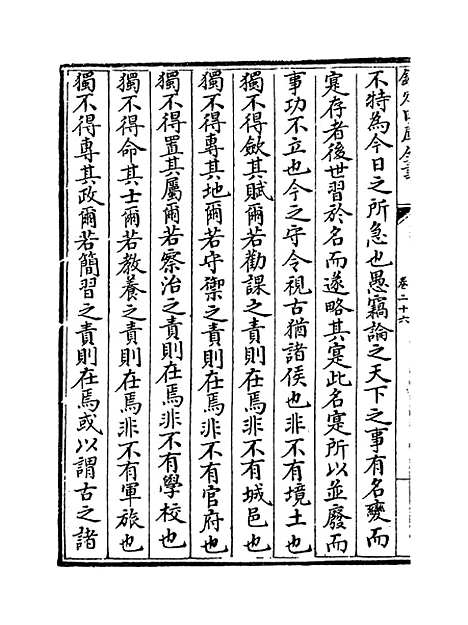 不特為今日之所急也愚竊論之天下之事有名變而
寔存者後世習於名而遂略其寔此名寔所以並廢而
事功不立也今之守令視古猶諸侯也非不有境土也
獨不得斂其賦爾若勸課之責則在焉非不有城邑也
獨不得專其地爾若守禦之責則在焉非不有官府也
獨不得置其屬爾若察治之責則在焉非不有學校也
獨不得命其士爾若教養之責則在焉非不有軍旅也
獨不得專其政爾若簡習之責則在焉或以謂古之諸
卷二十六